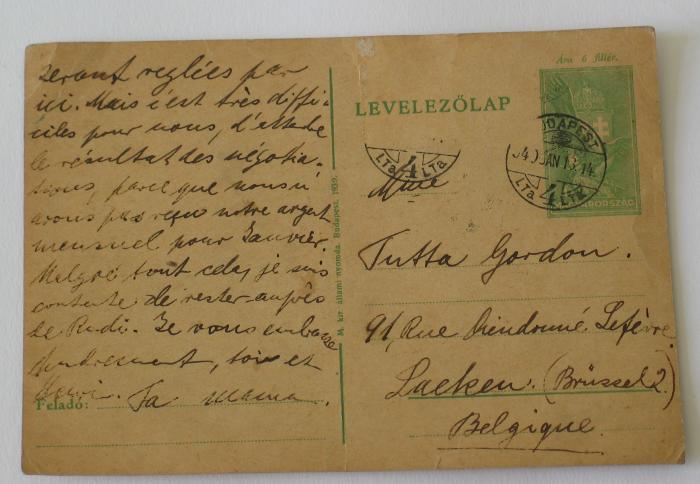 seront reglées par
ici. Mais c'est très diffi-
ciles pour nous, d'attendre
le résultat des négotia-
tions, parce que nous n'
avons pas reçu notre argent
mensuel pour Janvier.
Malgré tout cela, je suis
contente de rester auprès
de Rudi. Je vous embrasse
tendrement, toi et
Ta mama.
Feladó:
M. kir. állami nyomda. Budapest, 1939.
Ára 6 fillér.
LEVELEZŐLAP
BUDAPEST
940 JAN 13-14
4
LTa LTa
4
LTa LTa
MAGYARORSZÁG
Mme
Tutta Gordon.
91, Rue Dieudonné Lefèvre
Laeken. (Brüssel 2.)
Belgique.